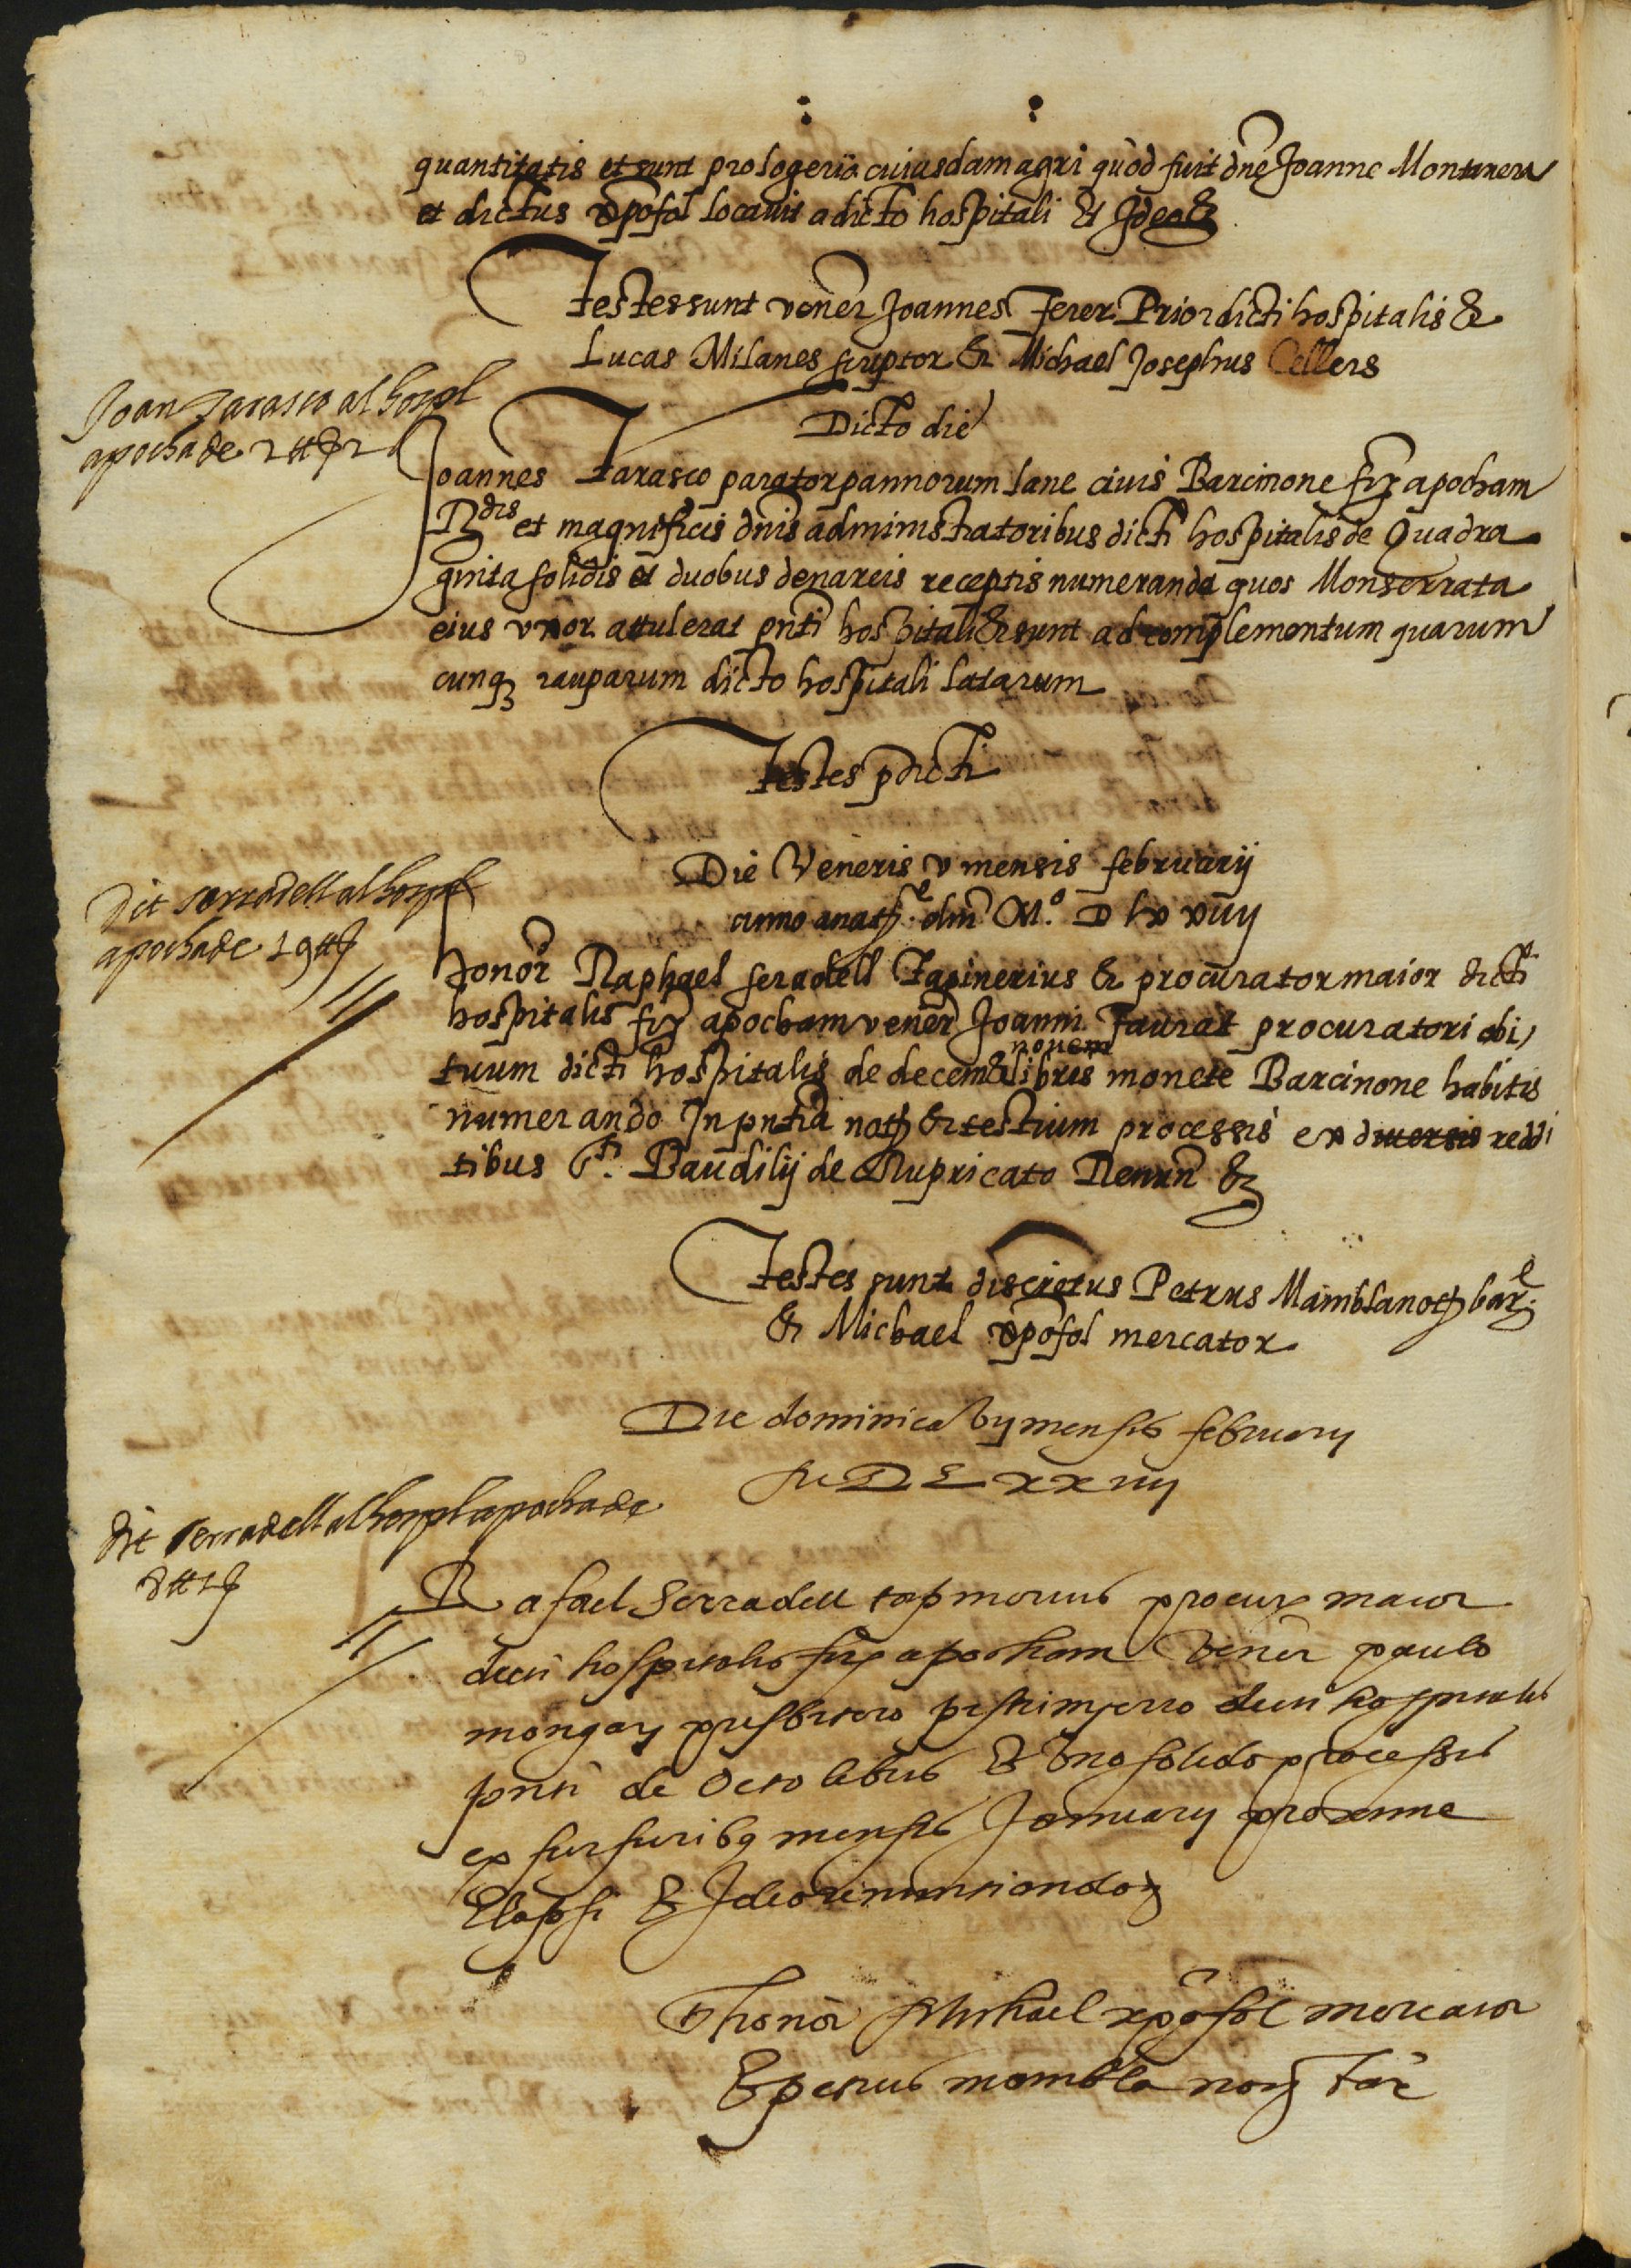 quantitatis et sunt pro logerio cuiusdam agri quòd fuit dne Joanne Montanera
et dictus xpofol locauit a dicto hospitali Et Ideo &
Testes sunt vener Joannes Ferer Prior dicti hospitalis &
Lucas Milanes scriptor & Michael Josephus Cellers
Dicto die
Joan Tarasco al hospl
apocha de 2 ℔ 2
Joannes Tarasco parator pannorum lane ciuis Barcinone fir apocham
Rdis et magnificis dnis administratoribus dicti hospitalis de Quadra
ginta solidis et duobus denareis receptis numerando quos Monserrata
eius vxor attulerat pnti hospitali & sunt ad complementum quarum
cunq rauparum dicto hospitali latarum
Testes pdicti
Die Veneris v mensis februarij
anno a nat e dni M.º D lxxiiij
Dit serradell al hospl
apocha de 19 ℔
Honor Raphael seradell Tapinerius & procurator maior dicti
hospitalis fir apocham vener Joanni Taurat procuratori obi
tuum dicti hospitalis de decem & nouem libris monete Barcinone habitis
numerando In pntia not & testium processis ex diuersis reddi
tibus Sti. Baudilij de Lupricato Renun &
Testes sunt discretus Petrus Mambla not bar e
& Michael xpofol mercator
Die dominica vij mensis februarij
M D L xx iiij
Dit serradell al hospl apocha de
8 ℔ 1
Rafael Serradell tapinerius procur maior
dicti hospitalis fir apocham Vener paulo
mongay presbitero pistrinyerro dicti hospitalis
pnti de octo libris & Vno solido processis
ex furfuribq mensis Januarij proxime
Elapsi & Ideo renuntiando &
T honor Michael xpofol mercator
& petrus mambla not bar